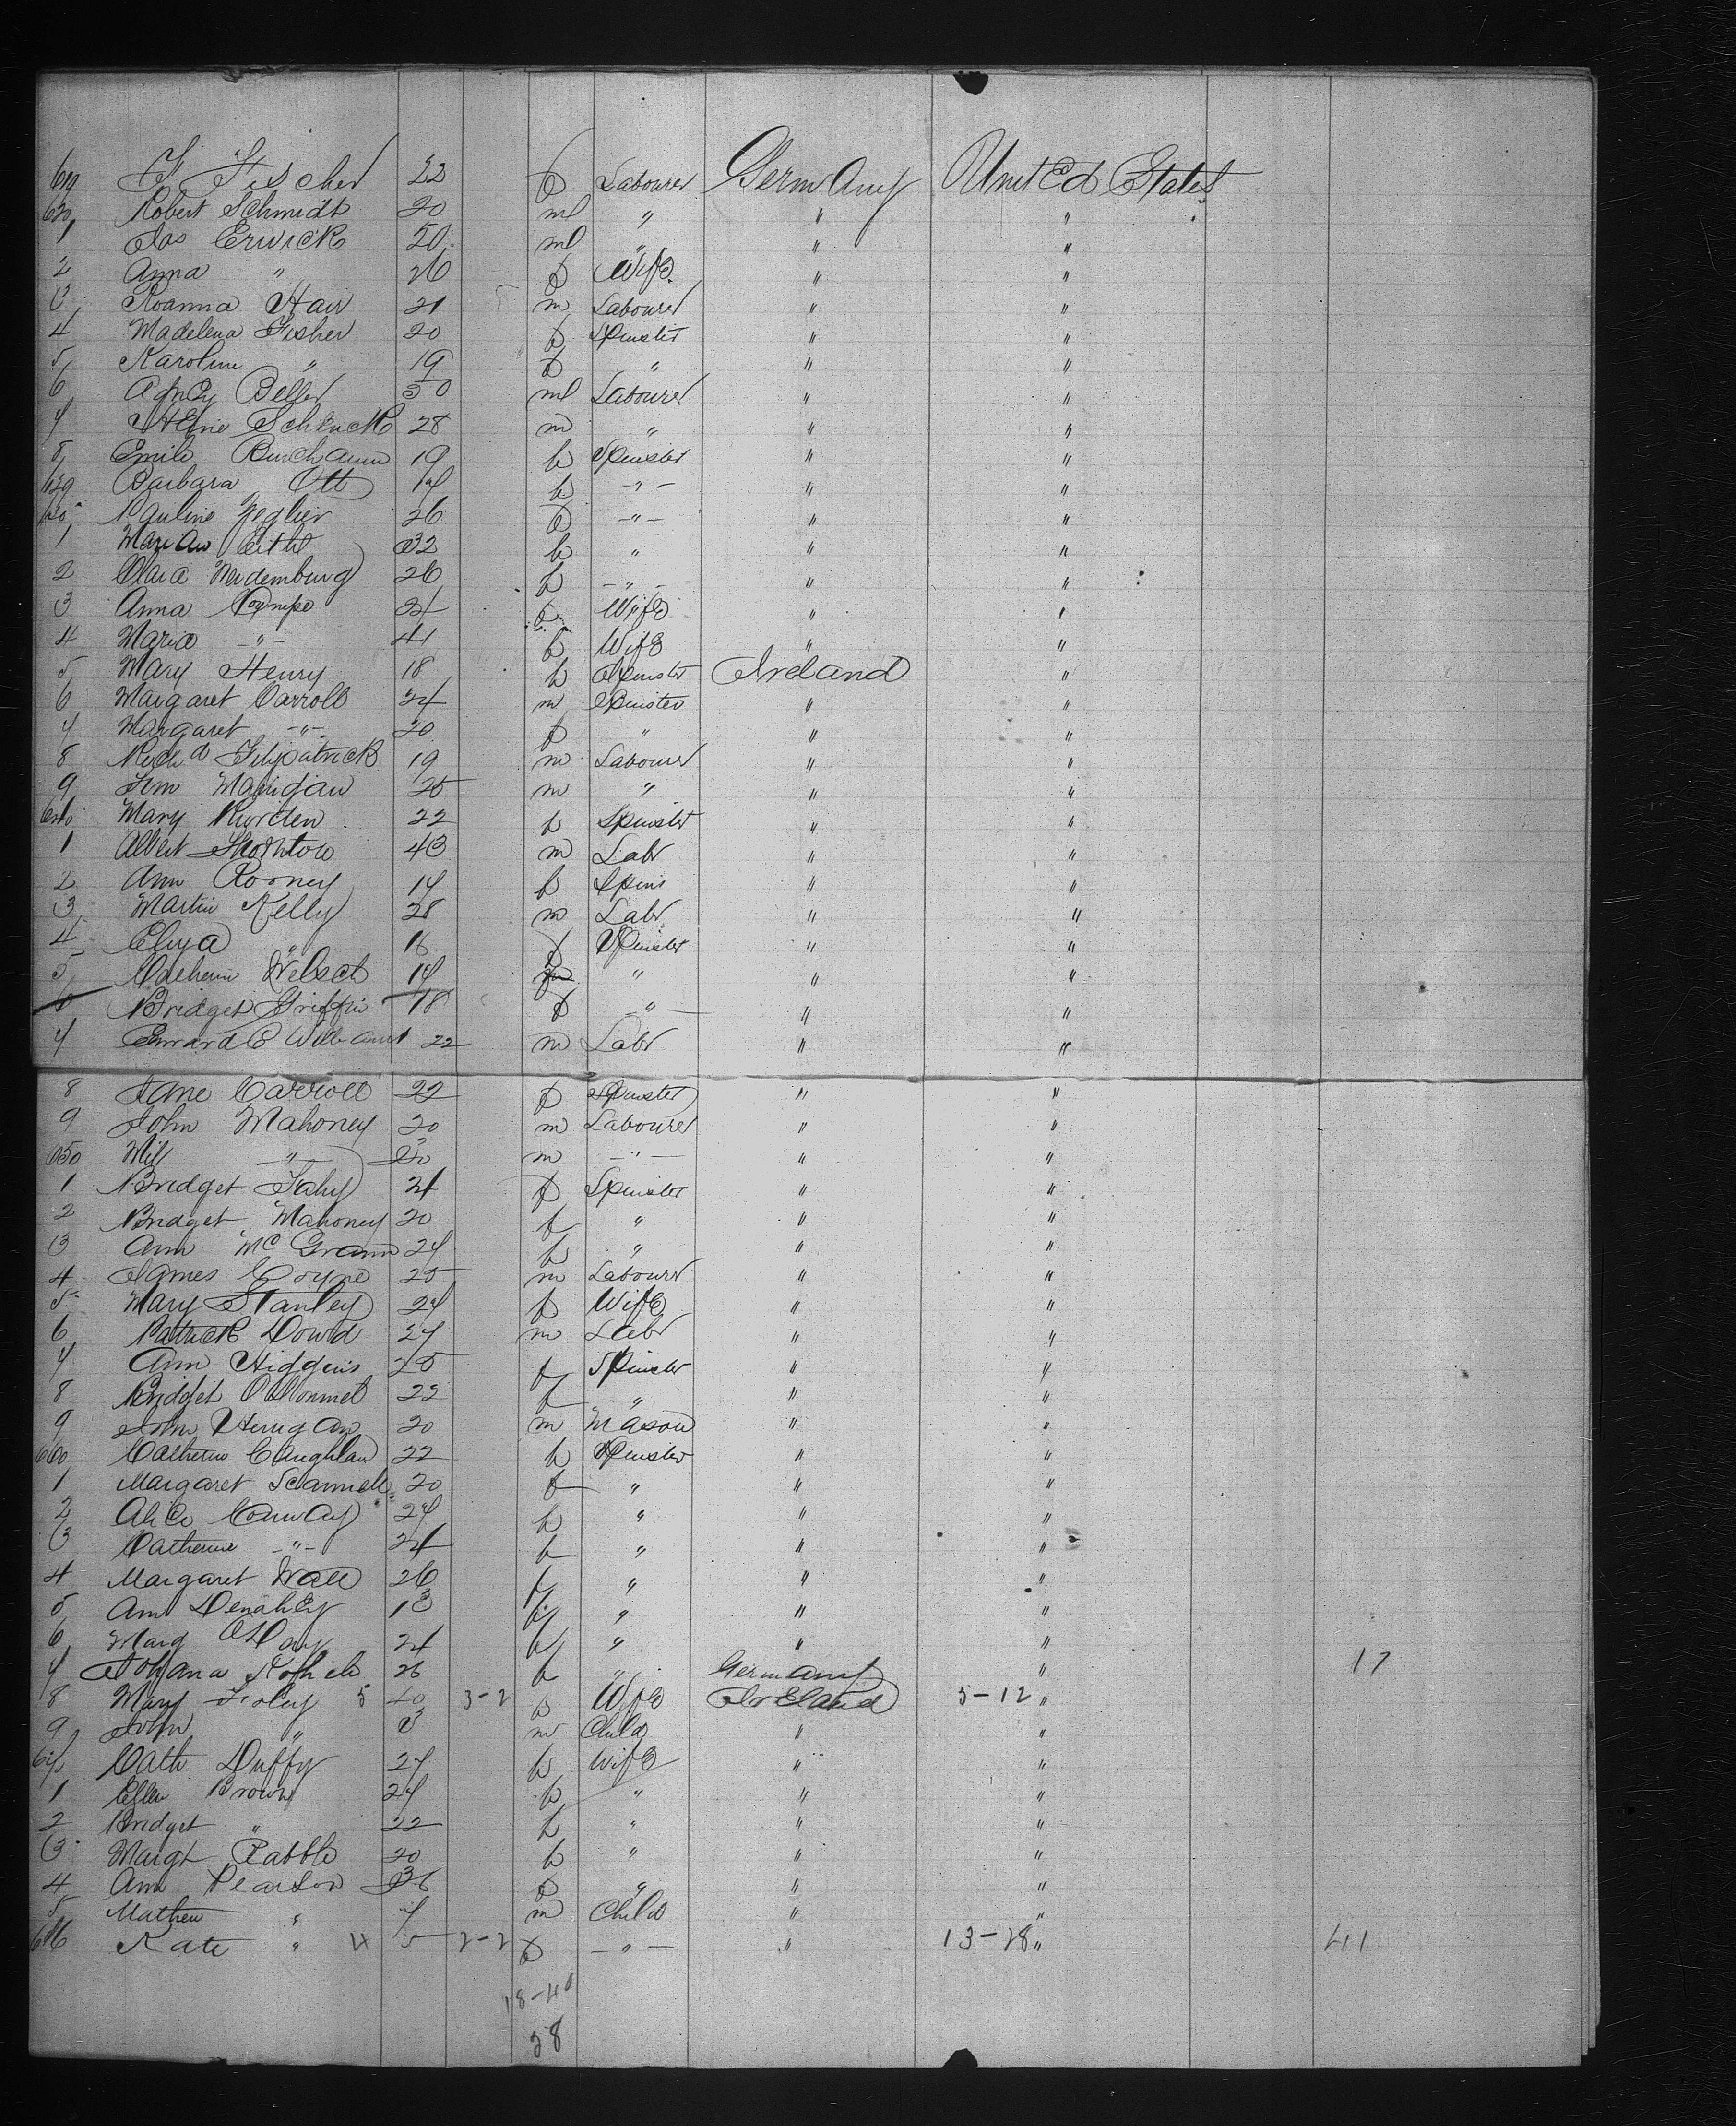 619 F Fischer 22 f Labourer Germany United States
620 Robert Schmidt 20 ml " " "
1 Jas Erwick 50 ml " " "
2 Anna " 26 f Wife " "
3 Roanna Hair 21 m Labourer " "
4 Madelena Fisher 20 f Spinster " "
5 Karoline " 19 f " " "
6 Beller 50 ml Labourer " "
7 Schenck 28 m " " "
8 Emile 19 f Spinster " "
629 Barbara Ott 17 f -"- " "
630 Pauline 26 f -"- " "
1 32 f " " "
2 Clara 26 f -"- " "
3 Anna 24 f Wife " "
4 Maria -"- 41 f Wife " "
5 Mary Henry 18 f Spinster Ireland "
6 Margaret Carroll 24 m Spinster " "
7 Margaret -"- 20 f " " "
8 Richd Fitzpatrick 19 m Labourer " "
9 25 m " " "
640 Mary 22 f Spinster " "
1 Albert Thornton 43 m Labr " "
2 Ann Rooney 17 f Spins " "
3 Martin Kelly 28 m Labr " "
4 Eliza " 16 f Spinster " "
5 Catherine Welsch 17 " " "
6 Bridget Griffin 18 f -"- " "
7 Edward C Williams 22 m Labr " "
8 Jane Carroll 22 f Spinster " "
9 John Mahoney 20 m Labourer " "
650 Will -"- 30 m -"- " "
1 Bridget Fahy 21 f Spinster " "
2 Bridget Mahoney 20 f " " "
3 Ann McGrann 27 f " " "
4 James Coyne 25 m Labourer " "
5 Mary Stanley 27 f Wife " "
6 Patrick Dowd 27 m Labr " "
7 Ann Higgins 25 f Spinster " "
8 Bridget 22 f " " "
9 John 20 m Mason " "
660 Catherine Coughlan 22 f Spinster " "
1 Margaret Scannell 20 f " " "
2 Alice Conway 27 f " " "
3 Catherine -"- 24 f " " "
4 Margaret Wall 26 f " " "
5 Ann Denahey 18 f " " "
6 Marg O Day 24 f " " "
7 Johana 26 f " Germany " 17
8 Mary Foley 5 40 3-2 f Wife Ireland 5-12 "
9 John " 3 m Child " "
670 Cath Duffy 27 f Wife " "
1 Ellen Brown 27 f " " "
2 Bridget " 22 f " " "
3 Margt Rabble 20 f " " "
4 Ann Pearson 36 f " " "
5 Mathew " 7 m Child " "
676 Kate " 4 5 2-2 f -"- " 13-28 " 41
18-40
38